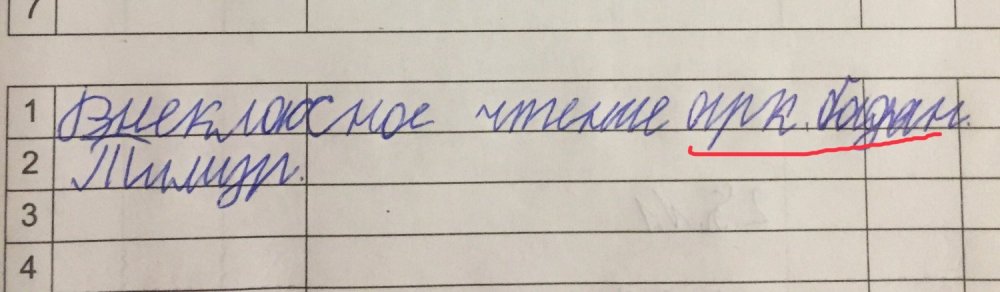 7
1 Внеклассное чтение арк. бадан.
2 Тимур.
3
4